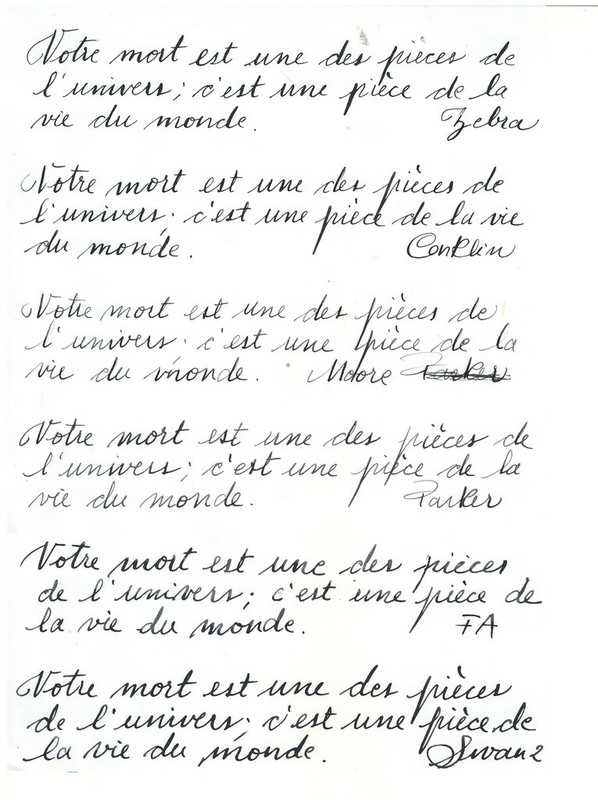 Votre mort est une des pièces de
l'univers; c'est une pièce de la
vie du monde. Zebra
Votre mort est une des pièces de
l'univers; c'est une pièce de la vie
du monde. Conklin
Votre mort est une des pièces de
l'univers; c'est une pièce de la
vie du monde. Moore Parker
Votre mort est une des pièces de
l'univers; c'est une pièce de la
vie du monde. Parker
Votre mort est une des pièces
de l'univers; c'est une pièce de
la vie du monde. FA
Votre mort est une des pièces
de l'univers; c'est une pièce de
la vie du monde. Swan 2